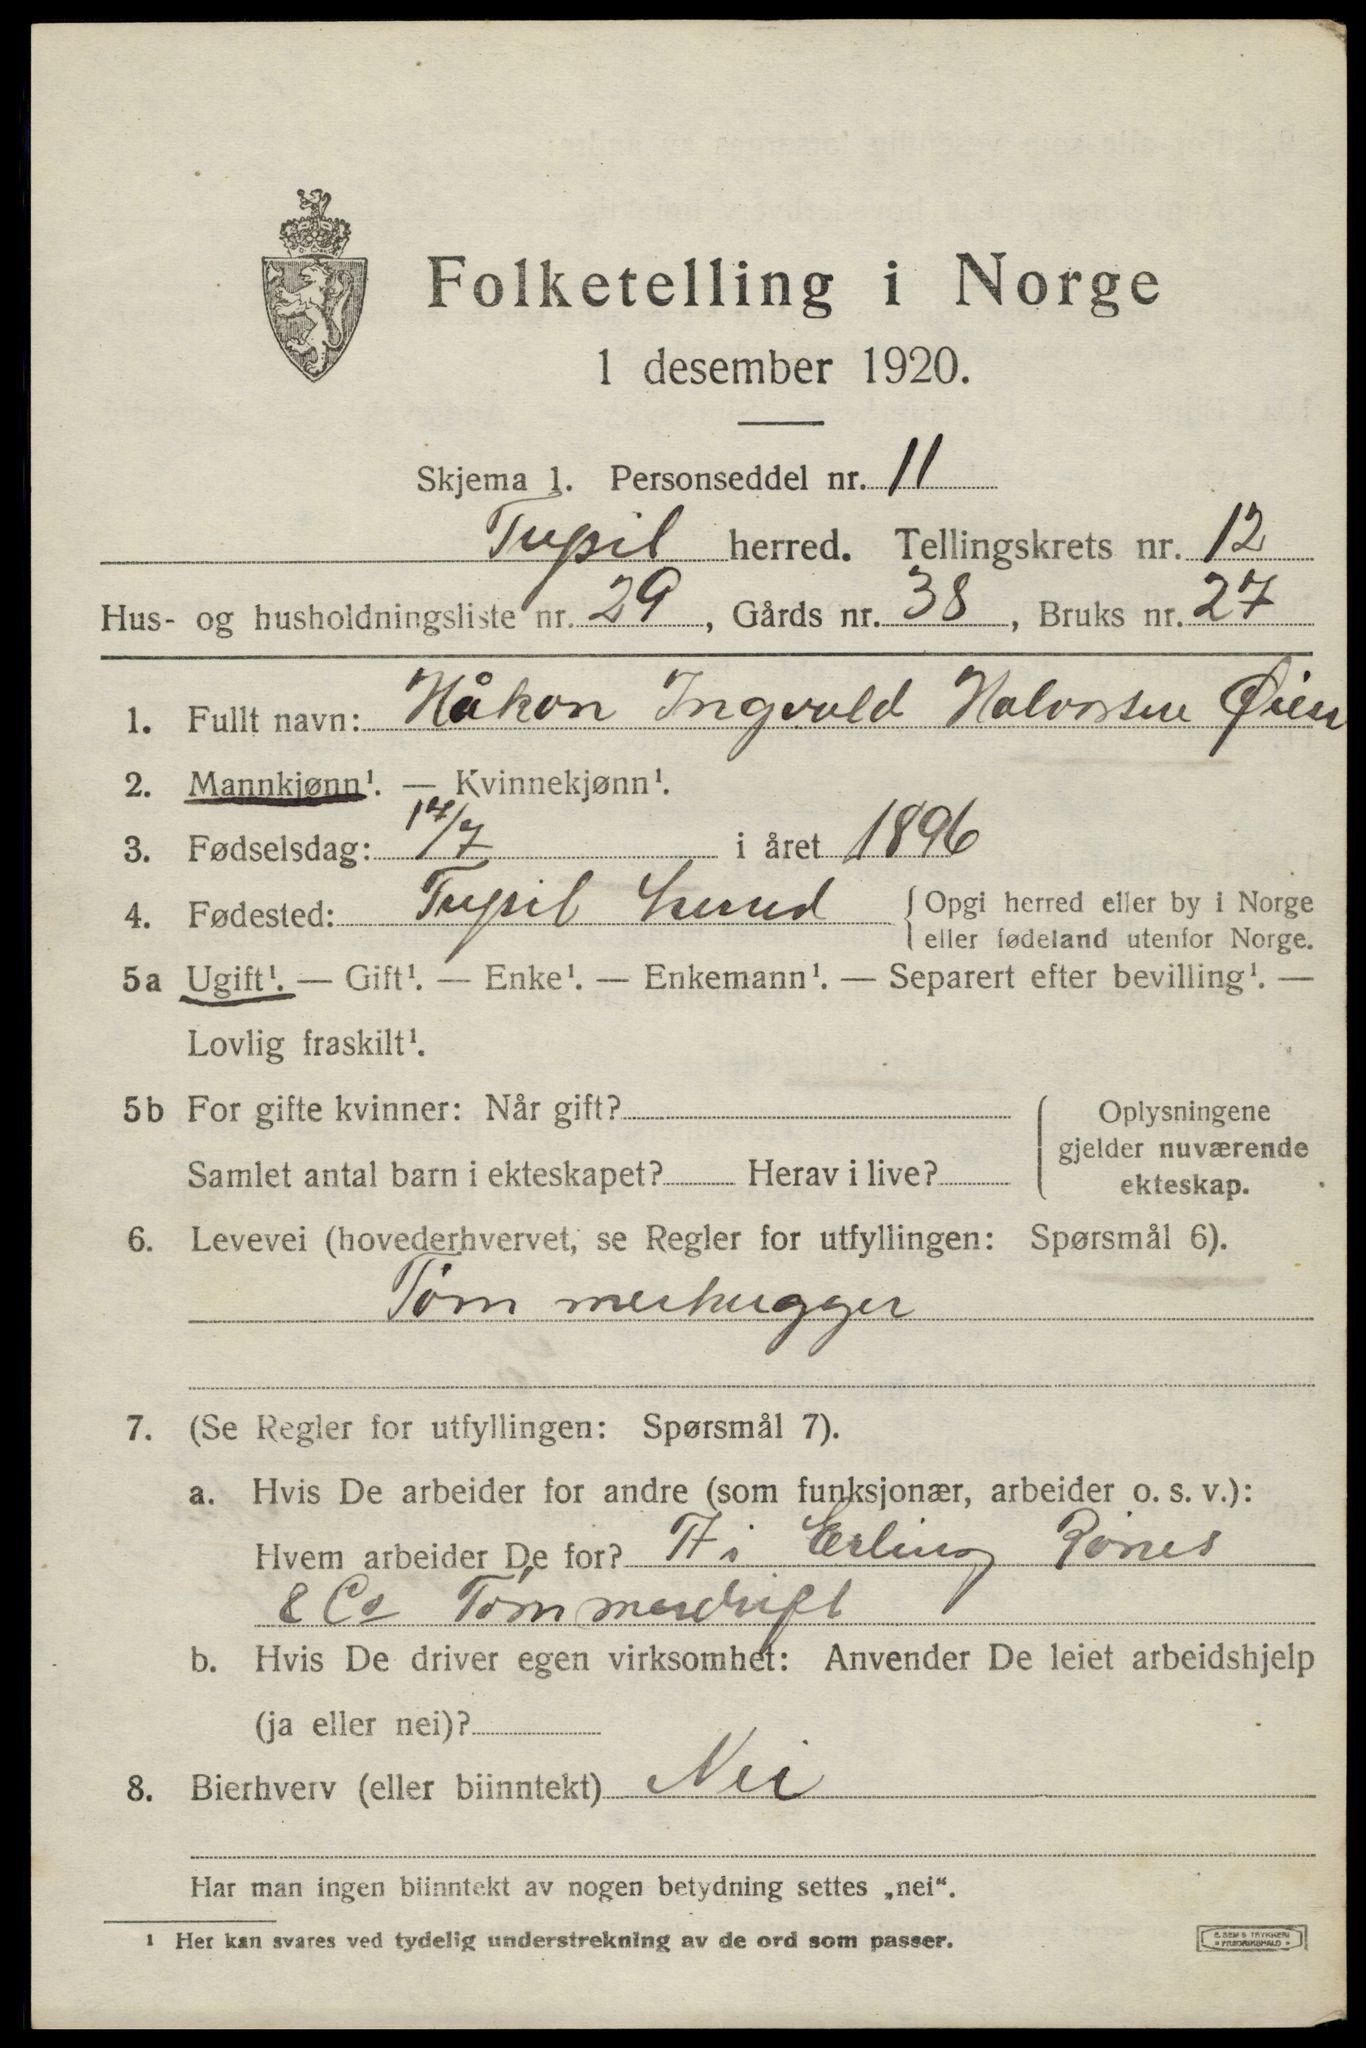 Folketelling i Norge
1 desember 1920.
Skjema 1. Personseddel nr. 11
Trysil herred. Tellingskrets nr. 12
Hus- og husholdningsliste nr. 29, Gårds nr. 38, Bruks nr. 27
1. Fullt navn: Håkon Ingvald Halvorsen Øien
2. Mannkjønn¹. — Kvinnekjønn¹.
3. Fødselsdag: 17/7 i året 1896
4. Fødested: Trysil herred { Opgi herred eller by i Norge
eller fødeland utenfor Norge.
5a Ugift¹. — Gift¹. — Enke¹. — Enkemann¹. — Separert efter bevilling¹. —
Lovlig fraskilt¹.
5b For gifte kvinner: Når gift?
Samlet antal barn i ekteskapet? Herav i live?
{ Oplysningene
gjelder nuværende
ekteskap.
6. Levevei (hovederhvervet, se Regler for utfyllingen: Spørsmål 6).
Tømmerhugger
7. (Se Regler for utfyllingen: Spørsmål 7).
a. Hvis De arbeider for andre (som funksjonær, arbeider o. s. v.):
Hvem arbeider De for? i Erling Rønes
& Co Tømmerdrift
b. Hvis De driver egen virksomhet: Anvender De leiet arbeidshjelp
(ja eller nei)?
8. Bierhverv (eller biinntekt) Nei
Har man ingen biinntekt av nogen betydning settes „nei“.
¹ Her kan svares ved tydelig understrekning av de ord som passer.